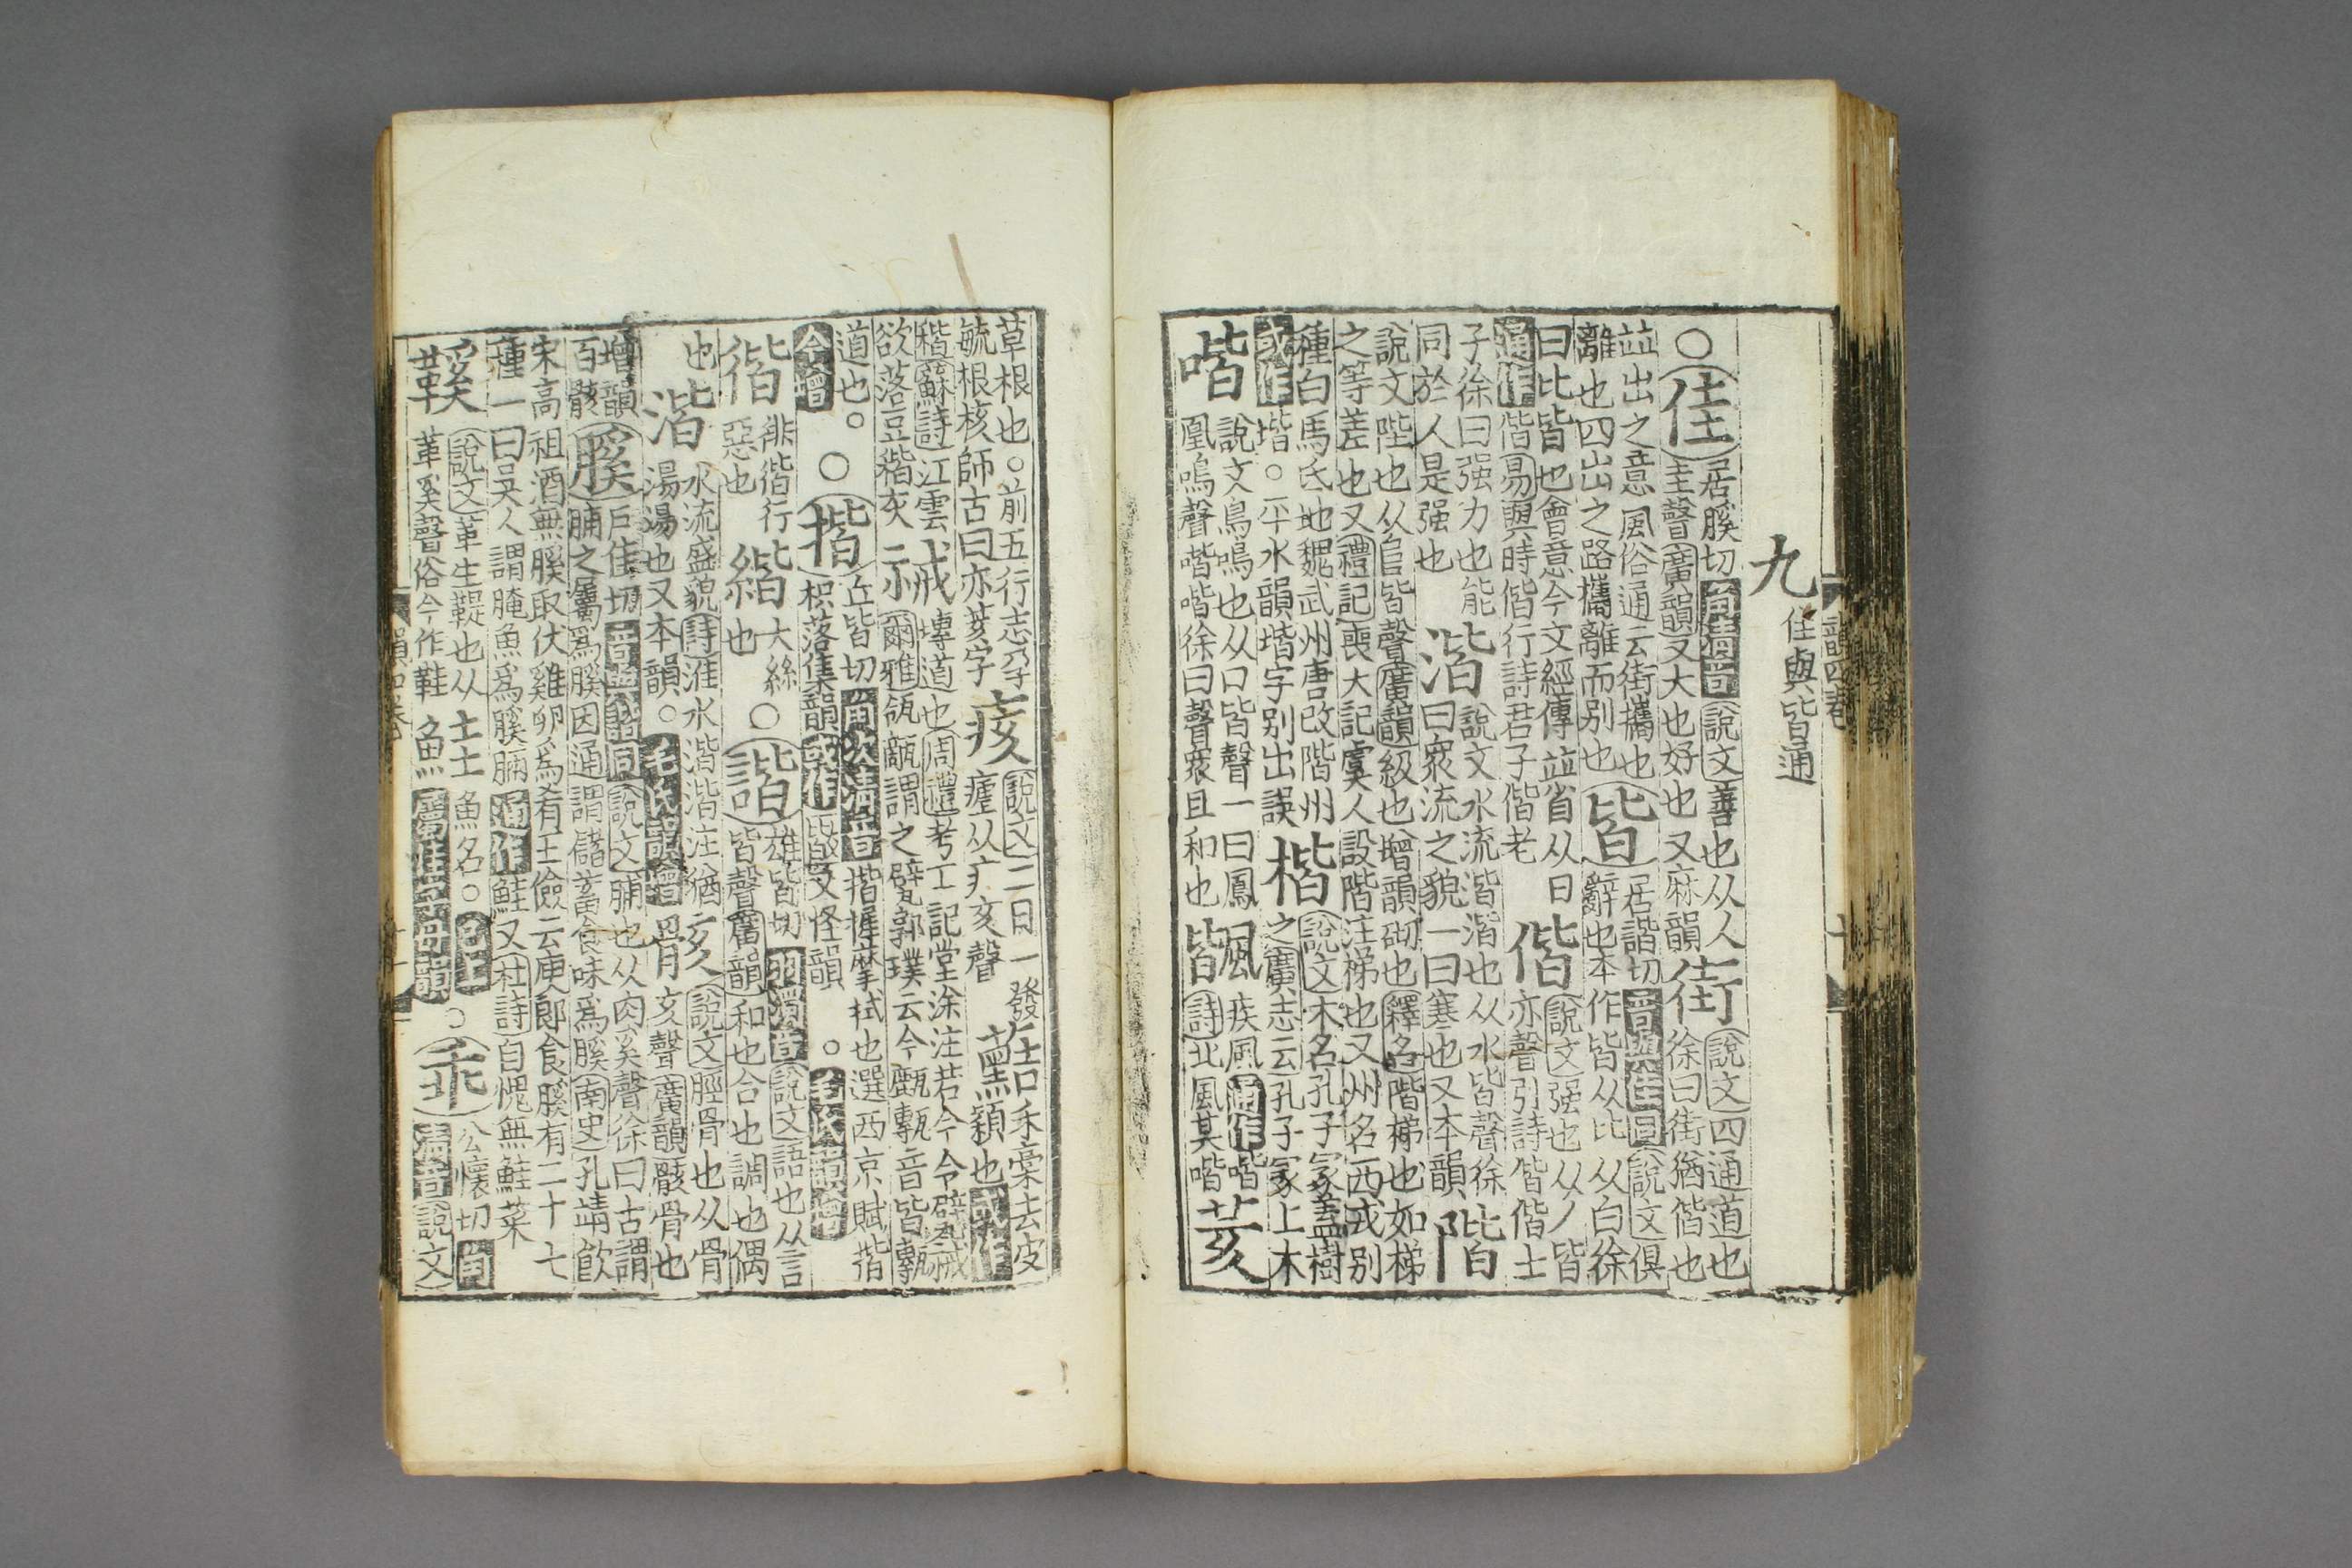 韻四卷
九 佳與皆通
○佳 居膎切角清音說文善也从人圭聲廣韻又大也好也又麻韻 街 說文四通道也徐曰街猶偕也
並出之意風俗通云街攜也離也四出之路攜離而別也 皆 居諧切音與佳同說文俱辭也本作皆从比从白徐
曰比皆也會意今文經傳並省从日通作偕易與時偕行詩君子偕老 偕 說文强也从人皆亦聲引詩偕偕士
子徐曰强力也能同於人是强也 湝 說文水流湝湝也从水皆聲徐曰衆流之貌一曰寒也又本韻 階
說文陛也从𨸏皆聲廣韻級也增韻砌也釋名階梯也如梯之等差也又禮記喪大記虞人設階注梯也又州名西戎別
種白馬氐地魏武州唐改階州或作堦。平水韻堦字別出誤 楷 說文木名孔子冢蓋樹之廣志云孔子冢上木
喈 說文鳥鳴也从口皆聲一曰鳳凰鳴聲喈喈徐曰聲衆且和也 𩘅 疾風通作喈詩北風其喈 荄
草根也。前五行志孕毓根核師古曰亦荄字 痎 說文二日一發瘧从疒亥聲 禾稾去皮穎也或作
稭蘇詩江雲欲落豆稭灰 祴 塼道也周禮考工記堂涂注若今令甓祴爾雅瓴甋謂之甓郭璞云今甎音皆甎
道也。今增 ○揩 丘皆切角次清音揩摩拭也選西京賦揩枳落集韻或作又怪韻 。毛氏韻增
徘行惡也 大絲也 ○諧 雄皆切羽濁音說文詥也从言皆聲廣韻和也合也調也偶
也 湝 水流盛貌詩淮水湝湝注猶湯湯也又本韻。毛氏韻增 骸 說文脛骨也从骨亥聲廣韻骸骨也
增韻百骸 膎 戶佳切音與諧同說文脯也从肉奚聲徐曰古謂脯之屬爲膎因通謂儲蓄食味爲膎南史孔靖飲
宋高祖酒無膎取伏雞卵爲肴王儉云庾郎食膎有二十七種一曰吳人謂腌魚爲膎通作鮭又杜詩自愧無鮭菜
鞵 說文革生鞮也从革奚聲俗今作鞋 鮭 魚名。 ○乖 公懷切角清音說文